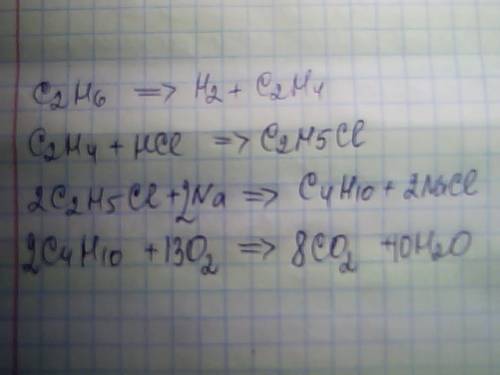 C2H6 => H2 + C2H4
C2H4 + HCl => C2H5Cl
2C2H5Cl + 2Na => C4H10 + 2NaCl
2C4H10 + 13O2 => 8CO2 + 10H2O